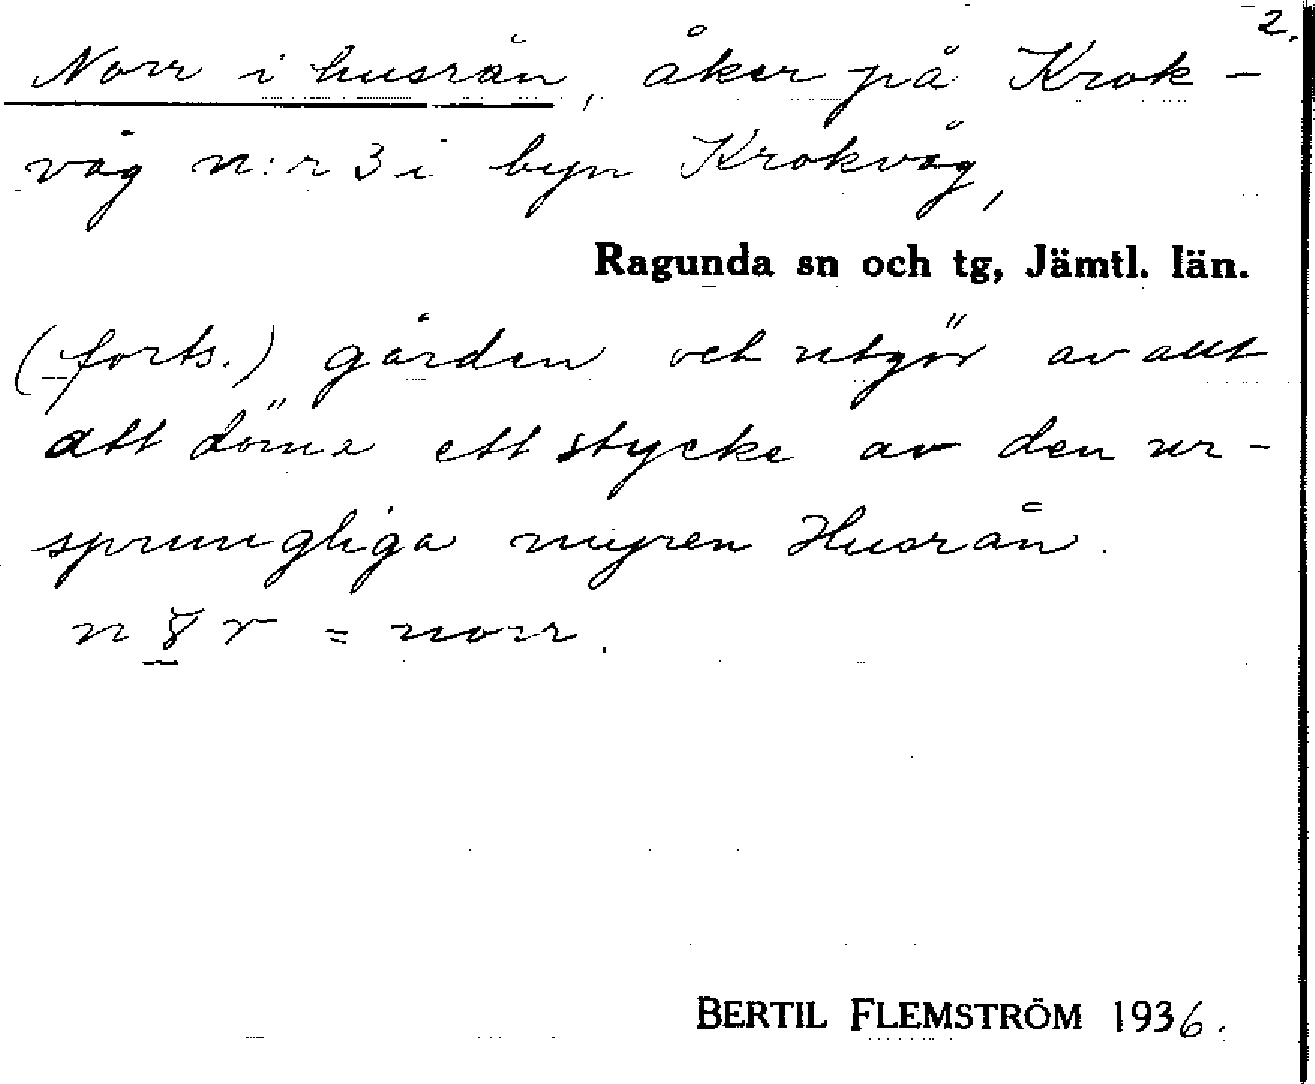 2.
Norr i husrån, åker på Krok-
våg n:r 3 i byn Krokvåg,
Ragunda sn och tg, Jämtl. län.
(forts.) gården och utgör av allt
att döma ett stycke av den ur-
sprungliga myren Husrån.
= norr.
BERTIL FLEMSTRÖM 1936.